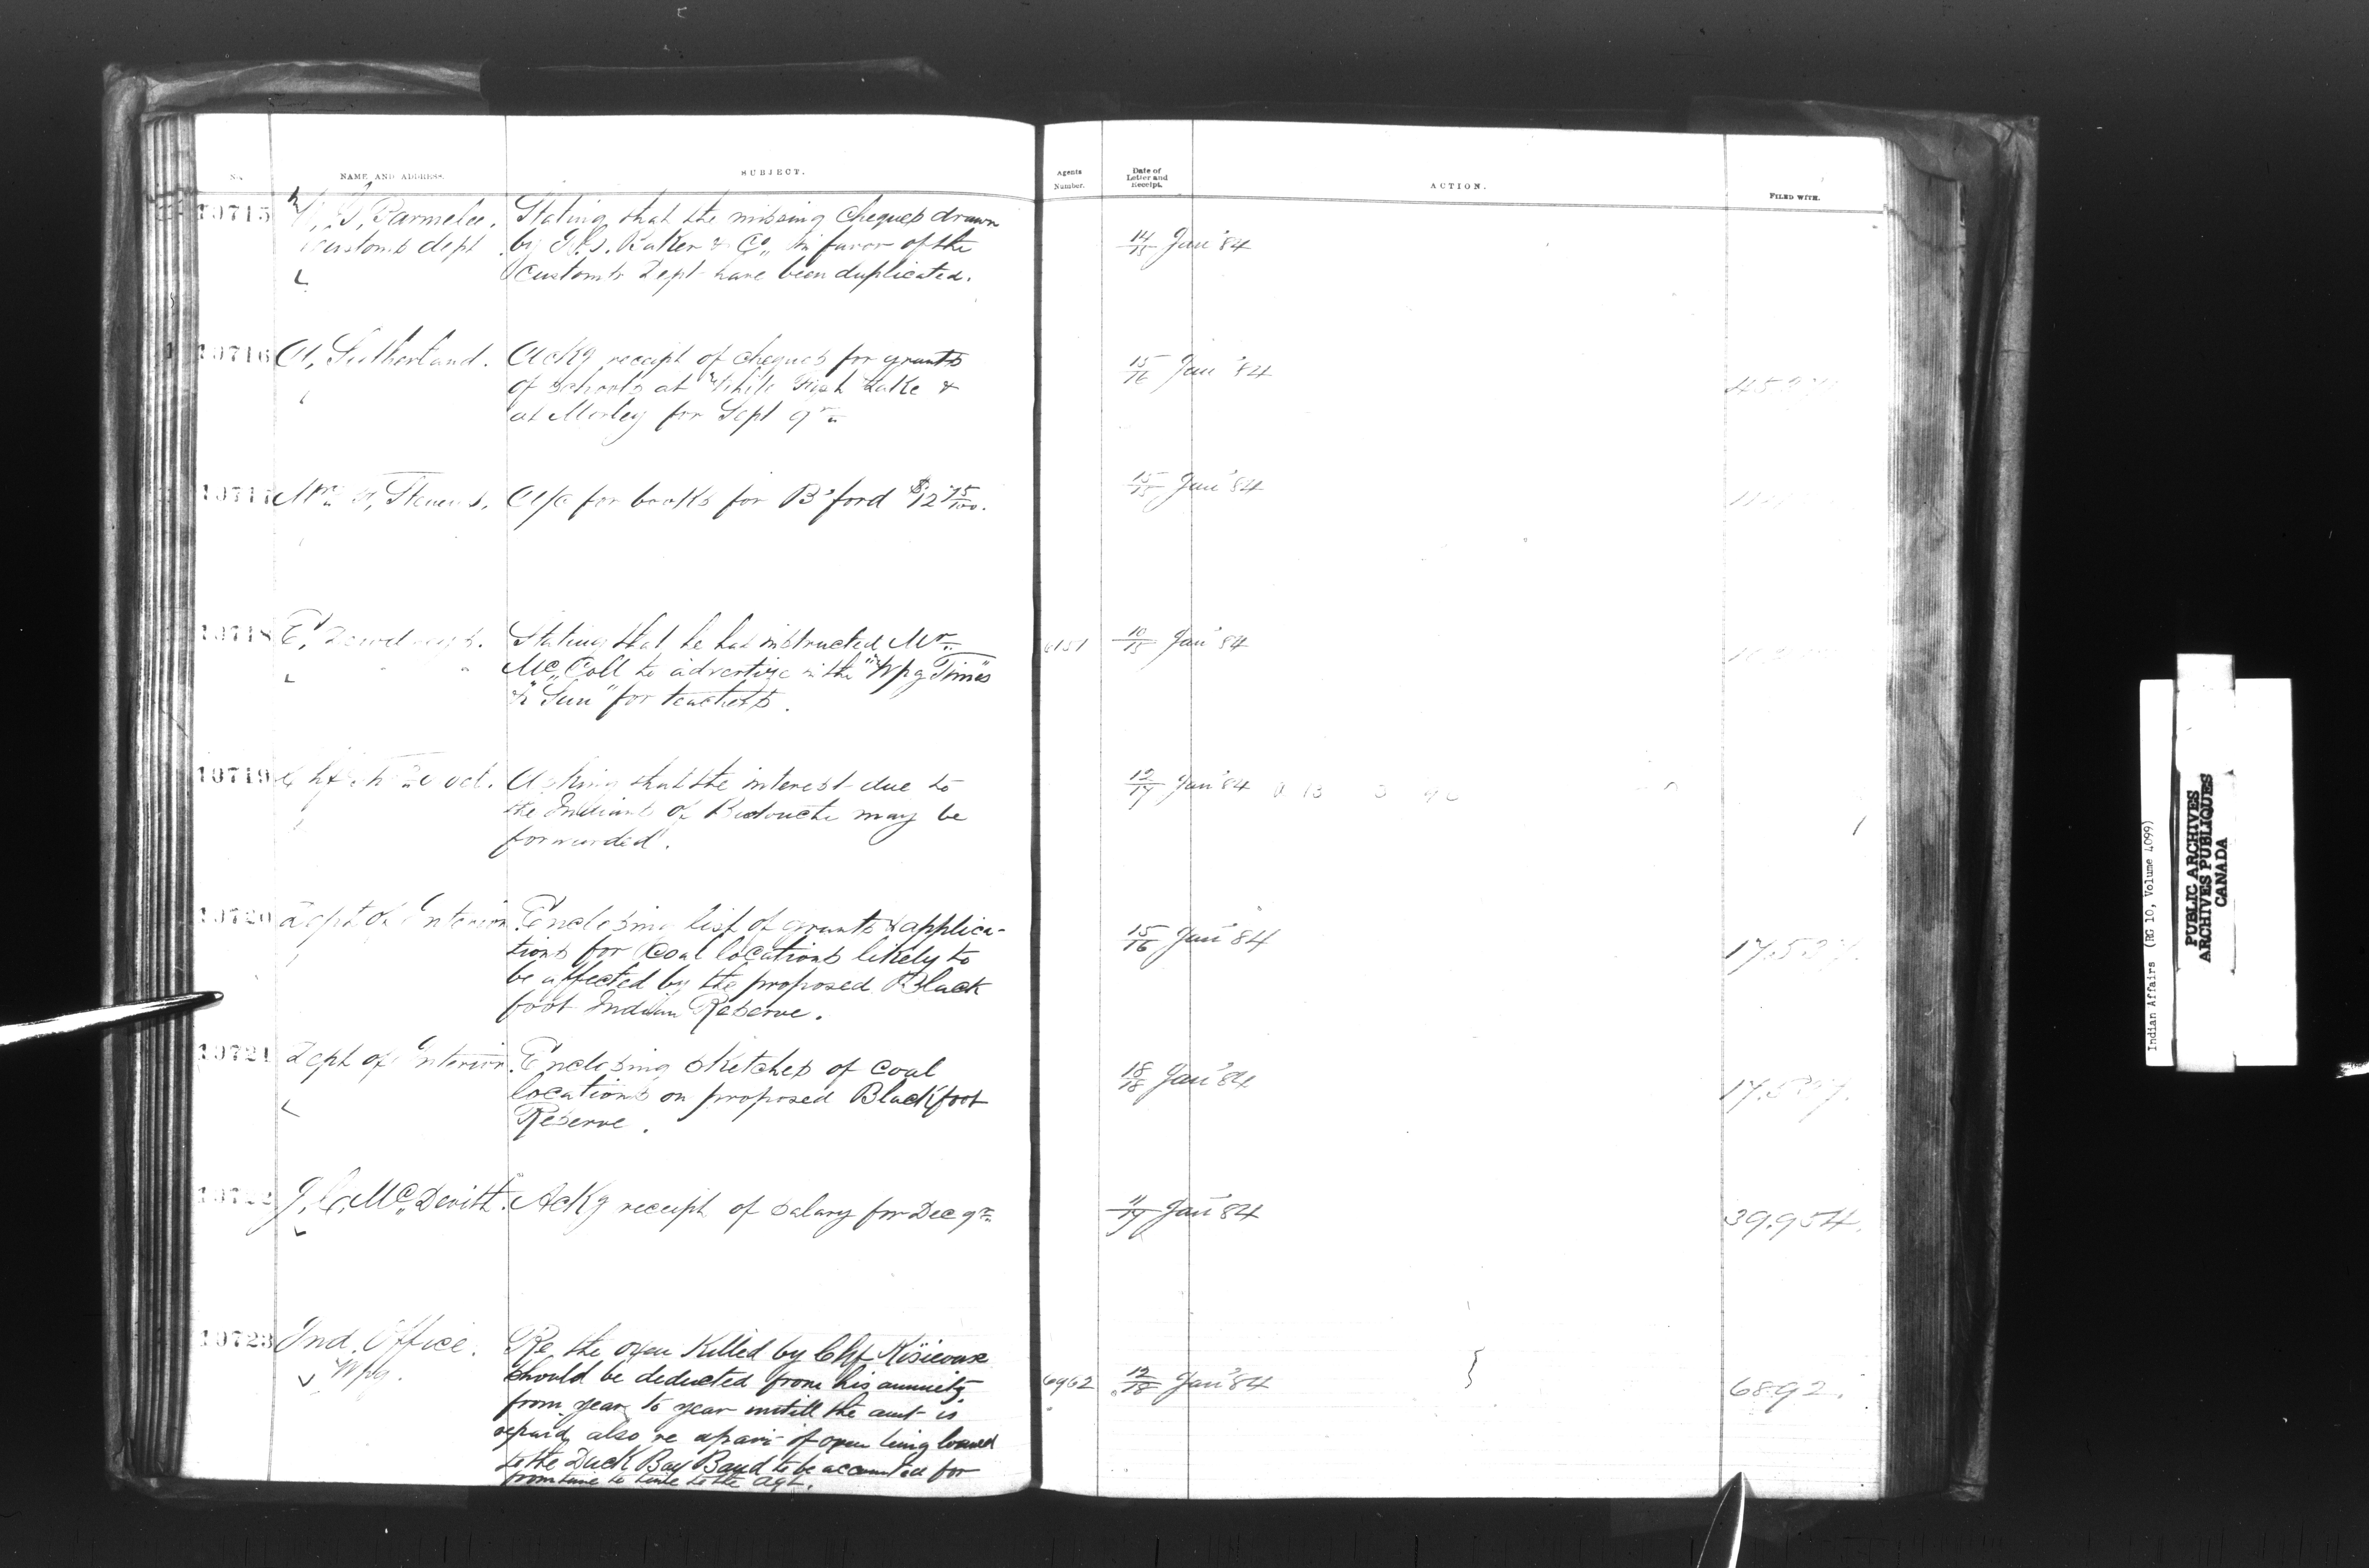 No. NAME AND ADDRESS. SUBJECT. Agents Number. Date of Letter and Receipt. ACTION. FILED WITH.
10715 W. G. Parmelee. Stating that the missing cheques drawn
Customs dept by I. G. Baker & Co. in favor of the 14/15 Jan'y 84
Customs Dept have been duplicated.
10716 A. Sutherland. Ackg receipt of cheques for grants
of schools at White Fish Lake & 15/16 Jan'y 84
at Morley for Sept qr
10717 Mrs Stevens. A/c for books for B'ford $12 75/100. 15/15 Jan'y 84
10718 E. Dewdney Stating that he has instructed Mr. 10/15 Jan'y 84
Mc Coll to advertize in the "Wpg Times"
& "Sun" for teachers.
10719 Asking that the interest due to 12/17 Jan'y 84
the Indians of Buctouche may be
forwarded.
10720 Dept of Interior. Enclosing list of grants & applica-
tions for Coal locations likely to 15/16 Jan'y 84
be affected by the proposed Black
foot Indian Reserve.
10721 Dept of Interior. Enclosing sketches of coal 18/18 Jan'y 84
locations on proposed Blackfoot
Reserve.
10722 J. C. McDevitt. Ackg receipt of salary for Dec qr 11/17 Jan'y 84 39.954.
10723 Ind. Office. Re the oxen killed by Chf
Wpg. should be deducted from his annuity 6962 12/18 Jan'y 84 6892.
from year to year untill the amt is
repaid, also re a pair of oxen being loaned
to the Duck Bay Band to be accounted for
from time to time to the Agt.
Indian Affairs (RG 10, Volume 4099)
PUBLIC ARCHIVES
ARCHIVES PUBLIQUES
CANADA